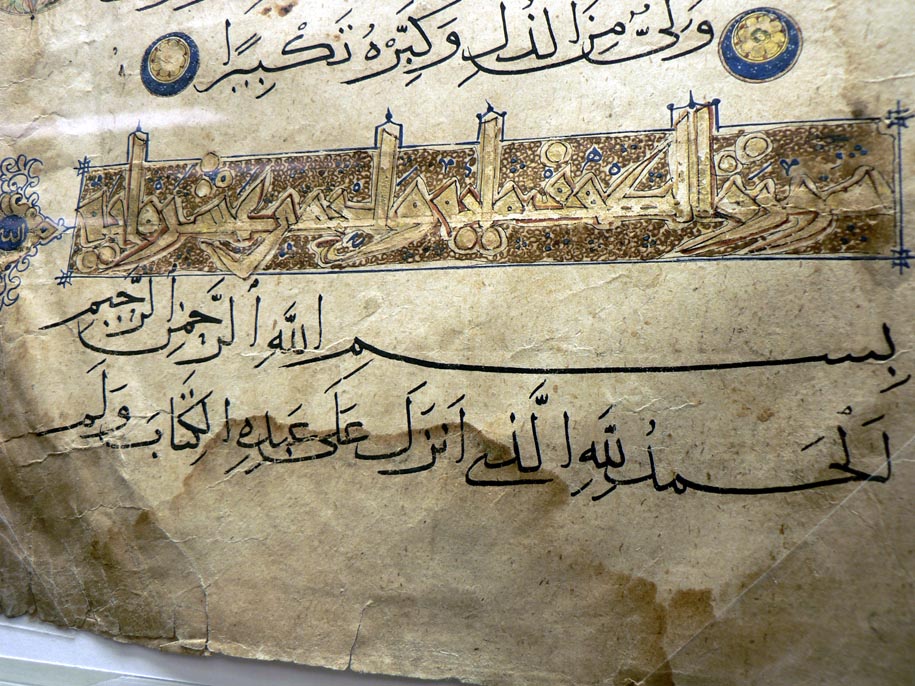 وَلِىٌّ مِنَ الذُّلِ وَكَبِّرْهُ تَكْبِيرًا
سورة الكهف
بِسمِ اللَّهِ الرَّحْمٰنِ الرَّحِيمِ
اَلْحَمدُ لِلَّهِ الَّذِى اَنزَلَ عَلَى عَبدِهِ الكِتَابَ وَلَم